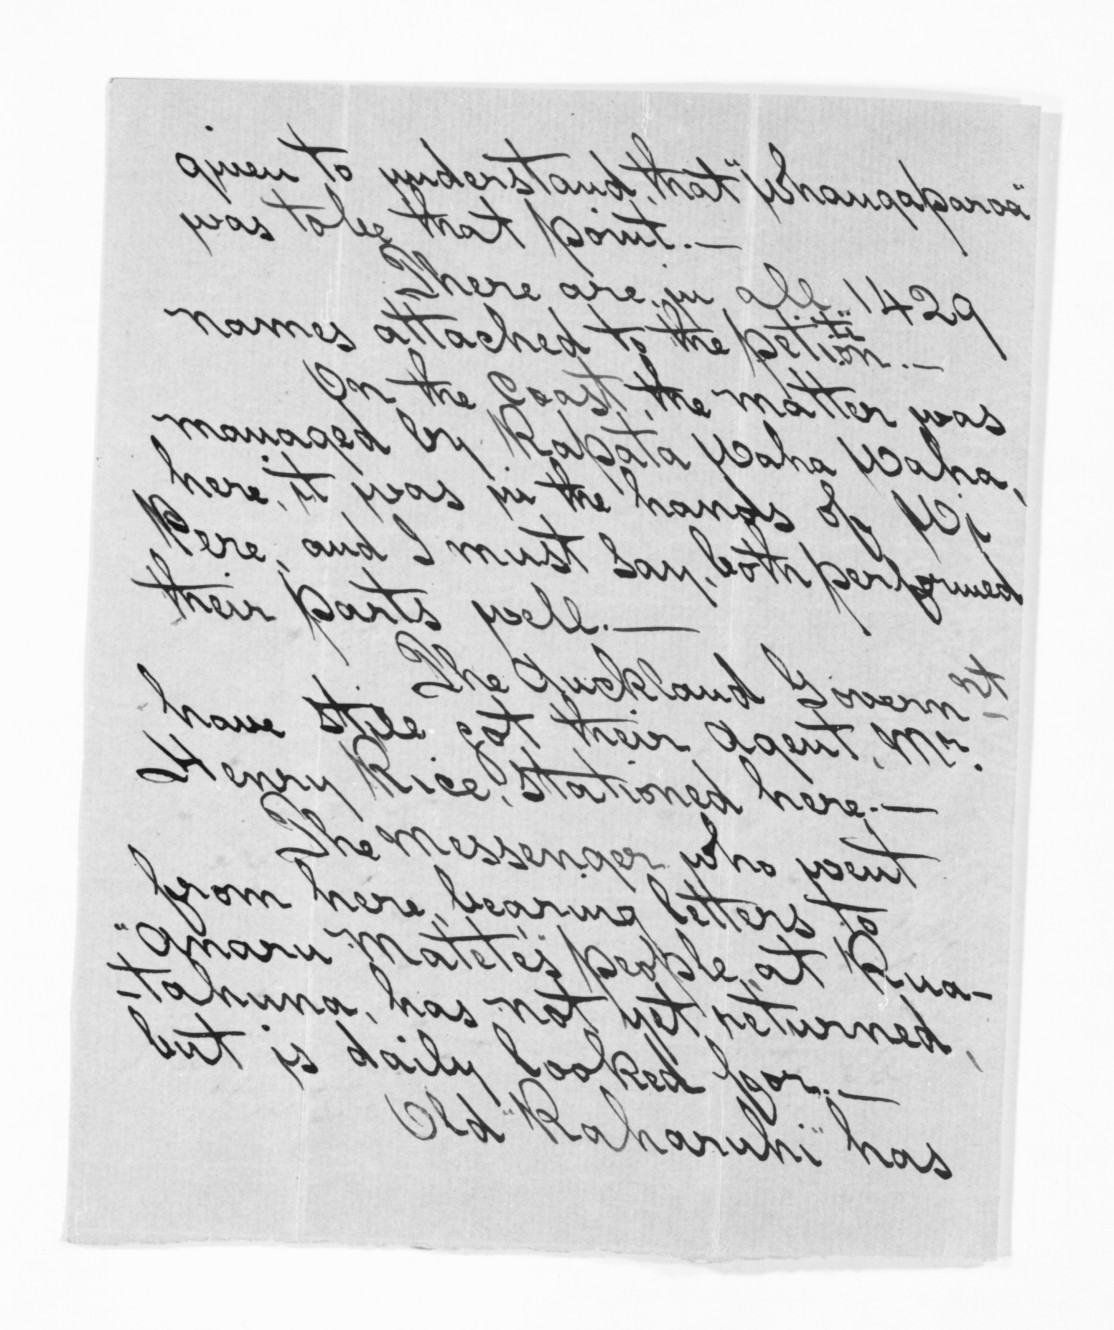 given to understand, that "Whangaparoa"
was to be that point. —
There are, in all, 1429
names attached to the petition. —
On the Coast, the matter was
managed by Rapata Waha Waha,
here, it was in the hands of Wi
Pere, and I must say, both performed
their parts well. —
The Auckland Governnt
have still got their agent, Mr.
Henry Rice, stationed here. —
The Messenger who went
from here, bearing letters to
"Anaru Matete's" people, at Rua-
-tahuna, has not yet returned,
but is daily looked for. —
Old "Raharuhi" has